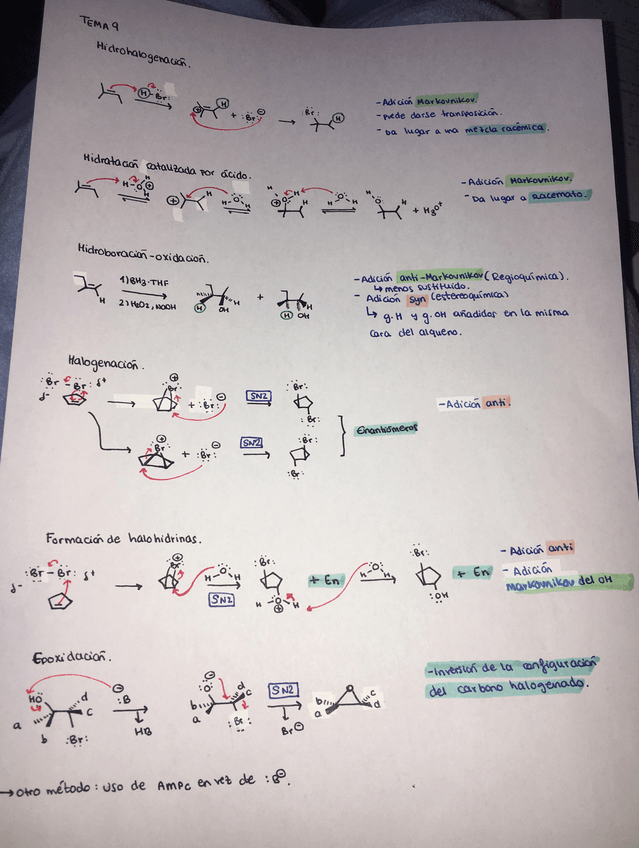 TEMA 9
Hidrohalogenación.
H-Br: H + :Br:⊖ → :Br: H
- Adición Markovnikov.
- Puede darse transposición.
- Da lugar a una mezcla racémica.
Hidratación catalizada por ácido.
H-O-H H ⊕ ⊕ H H-O-H H O H ⊕ H-O-H H O H + H₃O⁺
- Adición Markovnikov.
- Da lugar a racemato.
Hidroboración-oxidación.
1) BH₃·THF
2) H₂O₂, NaOH
H H H OH + H H OH
- Adición anti-Markovnikov (Regioquímica).
↳ menos sustituido.
- Adición syn (estereoquímica)
↳ g.H y g.OH añadidos en la misma
cara del alqueno.
Halogenación.
:Br-Br: δ+ δ- → ⊕ Br + :Br:⊖ SN2 → Br: Br:
→ ⊕ Br + :Br:⊖ SN2 → Br: Br:
Enantiómeros
- Adición anti.
Formación de halohidrinas.
:Br-Br: δ+ δ- → ⊕ Br H-O-H SN2 → :Br: H-O-H ⊕ + En H-O-H → Br: :OH + En
- Adición anti
- Adición
Markovnikov del OH
Epoxidación.
HO: a b c d :Br: ⊖:B HB :O:⊖ a b c d :Br: SN2 Br⊖ O a b c d
- Inversión de la configuración
del carbono halogenado.
→ Otro método: uso de AMPC en vez de :B⊖.